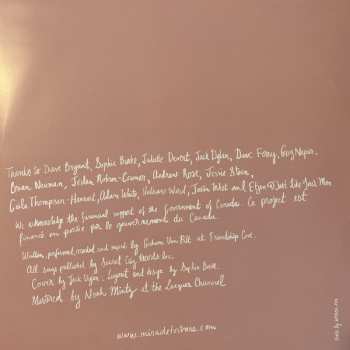 Thanks to Dave Bryant, Sophie Burke, Juliette Denont, Jack Dylan, Dave Ferry, Guy Napier,
Conan Neuman, Jordan Robson-Cramer, Andrew Rose, Jessie Stein,
Carla Thompson-Hannant, Adam Waito, Valerie Ward, Julia West and at Just Like Jack Men
We acknowledge the financial support of the Government of Canada. Ce projet est
financé en partie par le gouvernement du Canada.
Written, performed, recorded and mixed by Graham Van Pelt at Friendship Cove.
All songs published by Secret City Records Inc.
Cover by Jack Dylan. Layout and design by Sophie Burke.
Mastered by Noah Mintz at the Lacquer Channel
www.miraclefortress.com